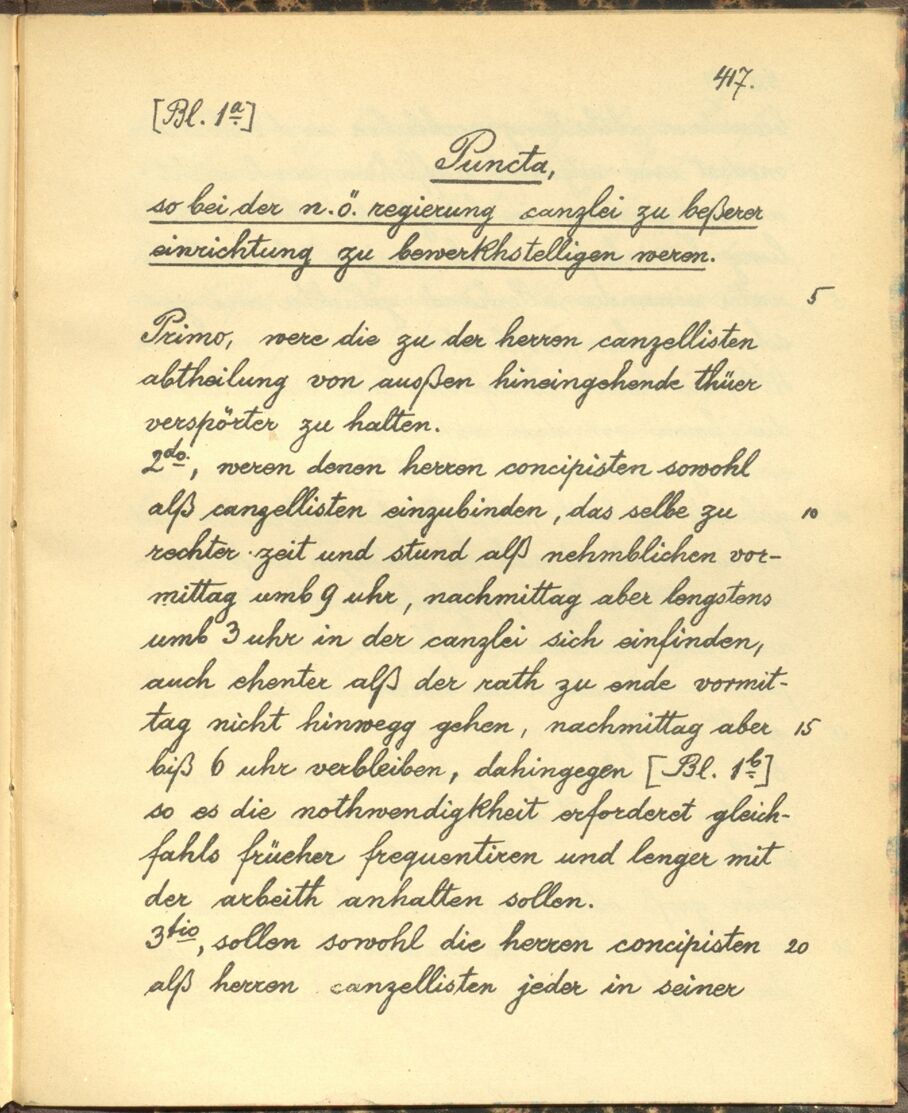 417.
[Bl. 1a]
Puncta,
so bei der n.ö. regierung canzlei zu beßerer
einrichtung zu bewerkhstelligen weren.
5
Primo, were die zu der herren canzellisten
abtheilung von außen hineingehende thüer
verspörter zu halten.
2do., weren denen herren concipisten sowohl
alß canzellisten einzubinden, das selbe zu 10
rechter zeit und stund alß nehmblichen vor-
mittag umb 9 uhr, nachmittag aber lengstens
umb 3 uhr in der canzlei sich einfinden,
auch ehenter alß der rath zu ende vormit-
tag nicht hinwegg gehen, nachmittag aber 15
biß 6 uhr verbleiben, dahingegen [Bl. 1b]
so es die nothwendigkheit erforderet gleich-
fahls früeher frequentiren und lenger mit
der arbeith anhalten sollen.
3tio, sollen sowohl die herren concipisten 20
alß herren canzellisten jeder in seiner